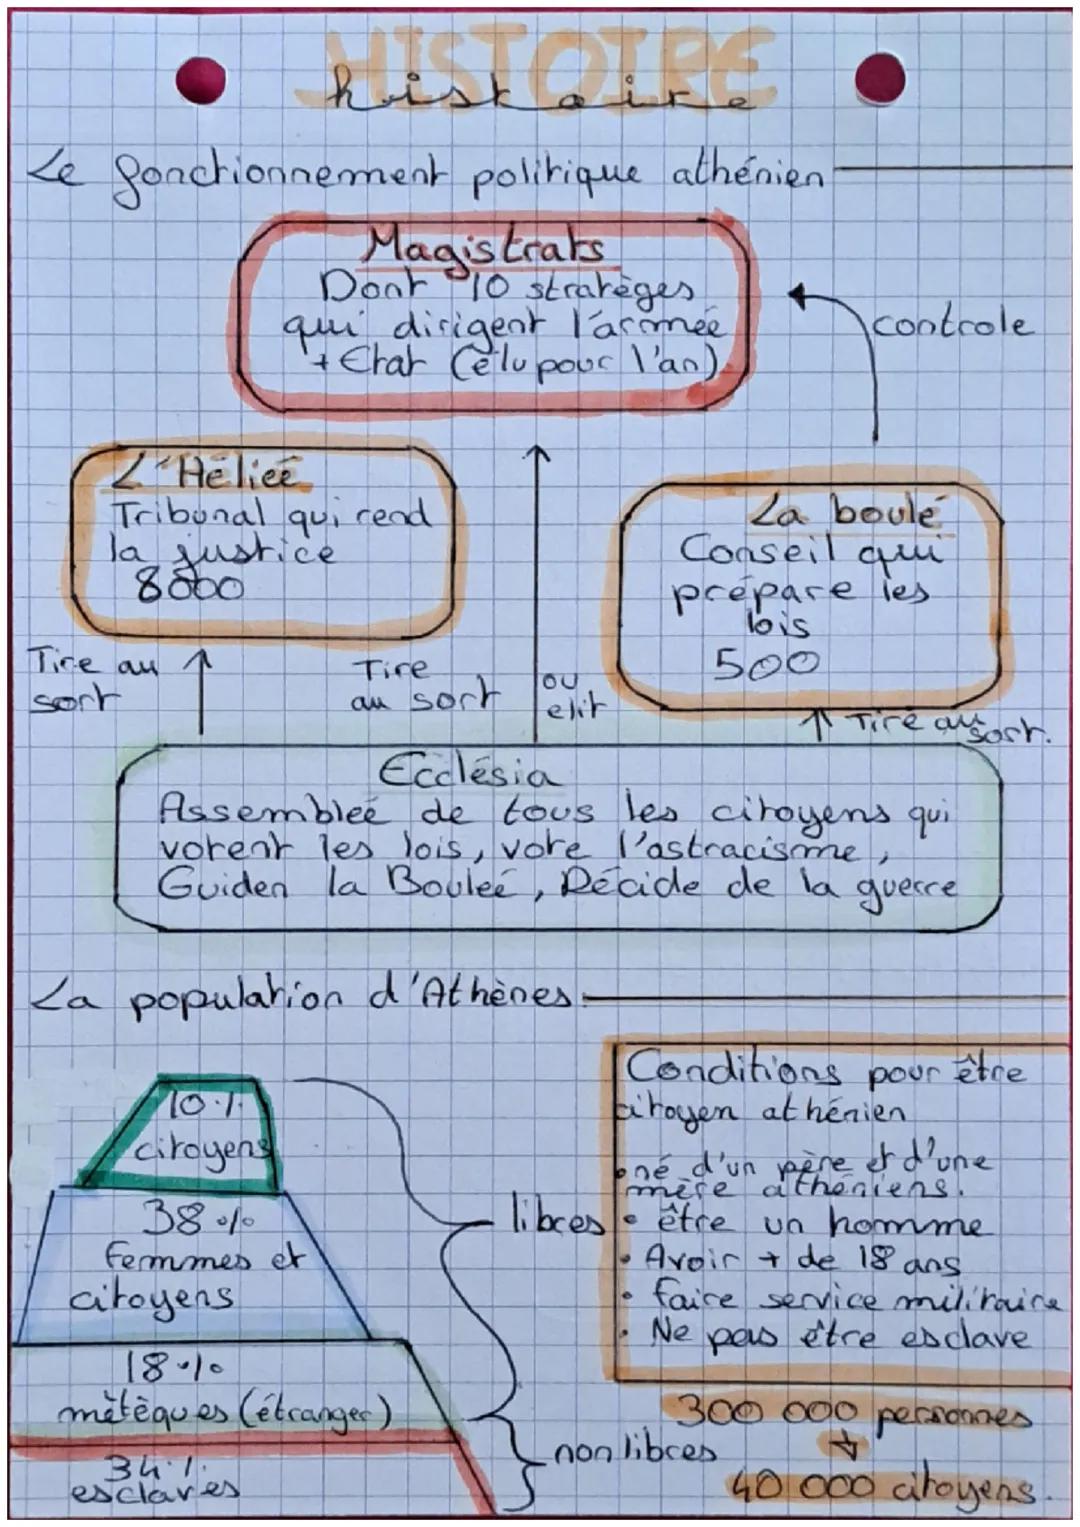 HISTOIRE
histoire
Le fonctionnement politique athénien
Magistrats
Dont 10 stratèges
qui dirigent l'armée
+ Etat (élu pour l'an)
controle
L'Héliée
Tribunal qui rend
la justice
8000
La boulé
Conseil qui
prépare les
lois
500
Tire au
sort
Tire
au sort
ou
elit
Tire au
sort.
Ecclésia
Assembleé de tous les citoyens qui
votent les lois, vote l'astracisme,
Guiden la Bouleé, Décide de la guerre
La population d'Athènes
10%
citoyens
38%
femmes et
citoyens
18%
mètèques (étranger)
34%
esclaves
libres
non libres
Conditions pour être
citoyen athénien
• né d'un père et d'une
mère athéniens.
• être un homme
• Avoir + de 18 ans
• faire service militaire
• Ne pas être esclave
300 000 personnes
40 000 citoyens.